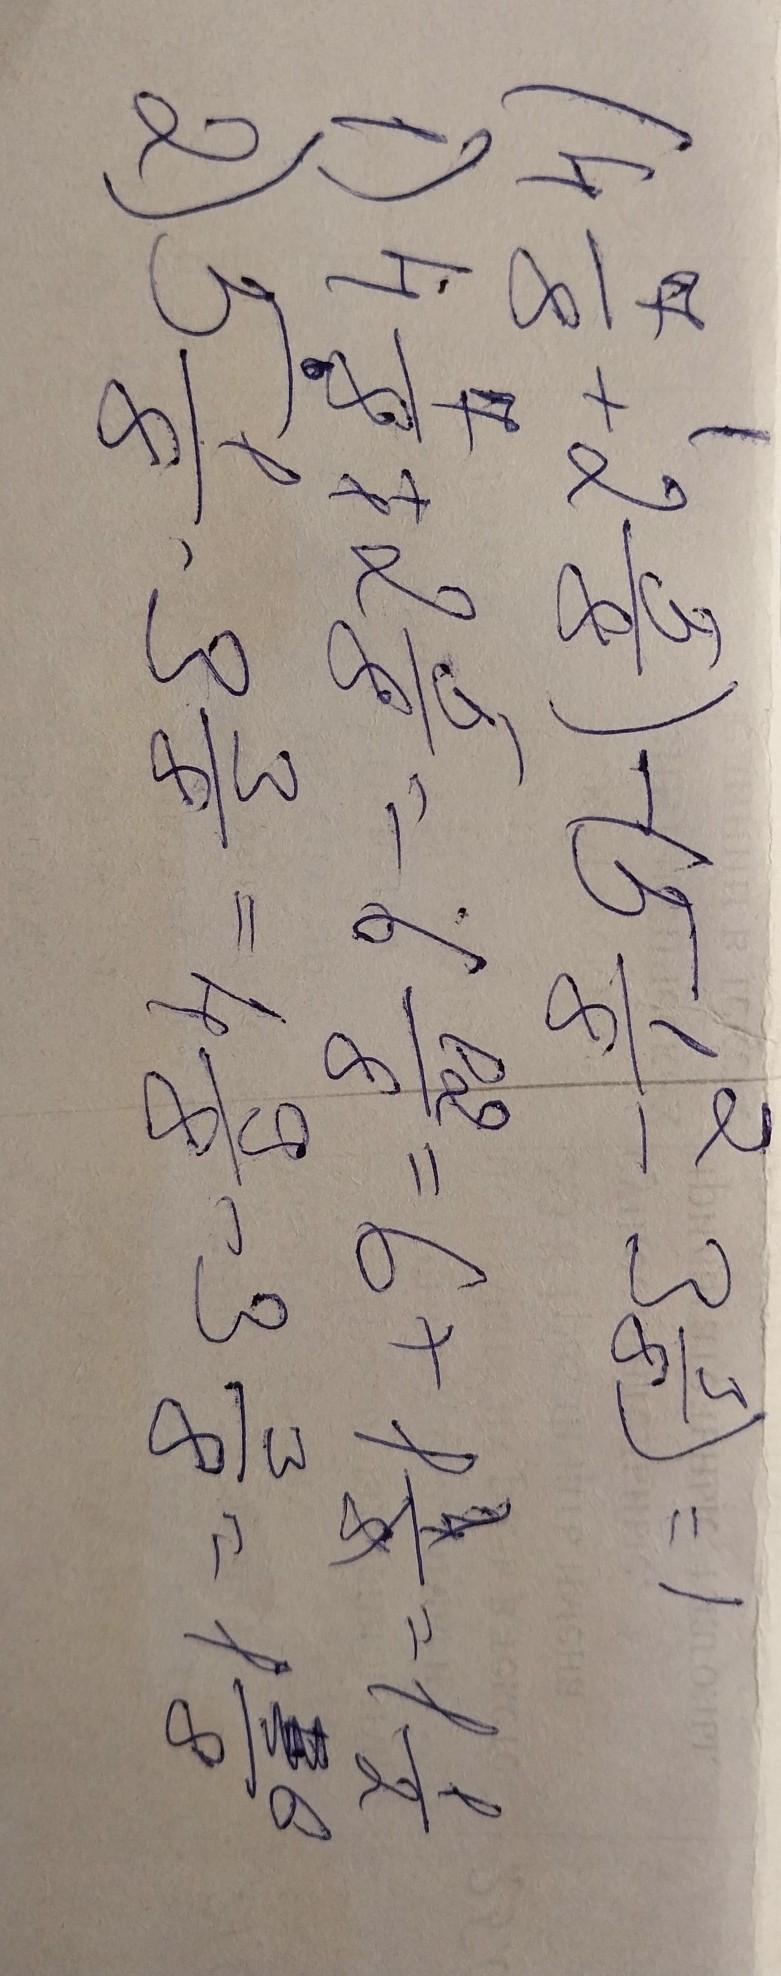 (4 7/8 + 2 5/8) - (5 1/8 - 3 3/8) = 1
1) 4 7/8 + 2 5/8 = 6 12/8 = 6 + 1 4/8 = 1 1/2
2) 5 1/8 - 3 3/8 = 4 9/8 - 3 3/8 = 1 6/8